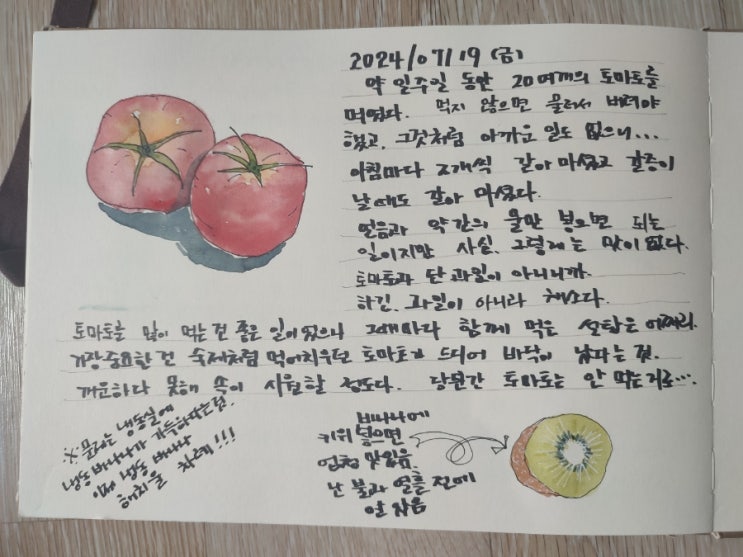 2024/07/19 (금)
약 일주일 동안 20여개의 토마토를
먹었다. 먹지 않으면 물러서 버려야
했고, 그것처럼 아까운 일도 없으니...
아침마다 2개씩 갈아 마셨고 갈증이
날 때도 갈아 마셨다.
얼음과 약간의 물만 넣으면 되는
일이지만 사실, 그렇게는 맛이 없다.
토마토과 단 과일이 아니니까.
하긴, 과일이 아니라 채소다.
토마토를 많이 먹는 건 좋은 일이었으나 그때마다 함께 먹은 설탕은 어쩌리.
가장 중요한 건 숙제처럼 먹어치우던 토마토가 드디어 바닥이 났다는 것.
개운하다 못해 속이 시원할 정도다. 당분간 토마토는 안 먹는 거로...
※ 문제는 냉동실에
냉동 바나나가 가득하다는 점.
이제 냉동 바나나
해치울 차례!!!
바나나에
키위 넣으면
엄청 맛있음.
난 불과 열흘 전에
알았음